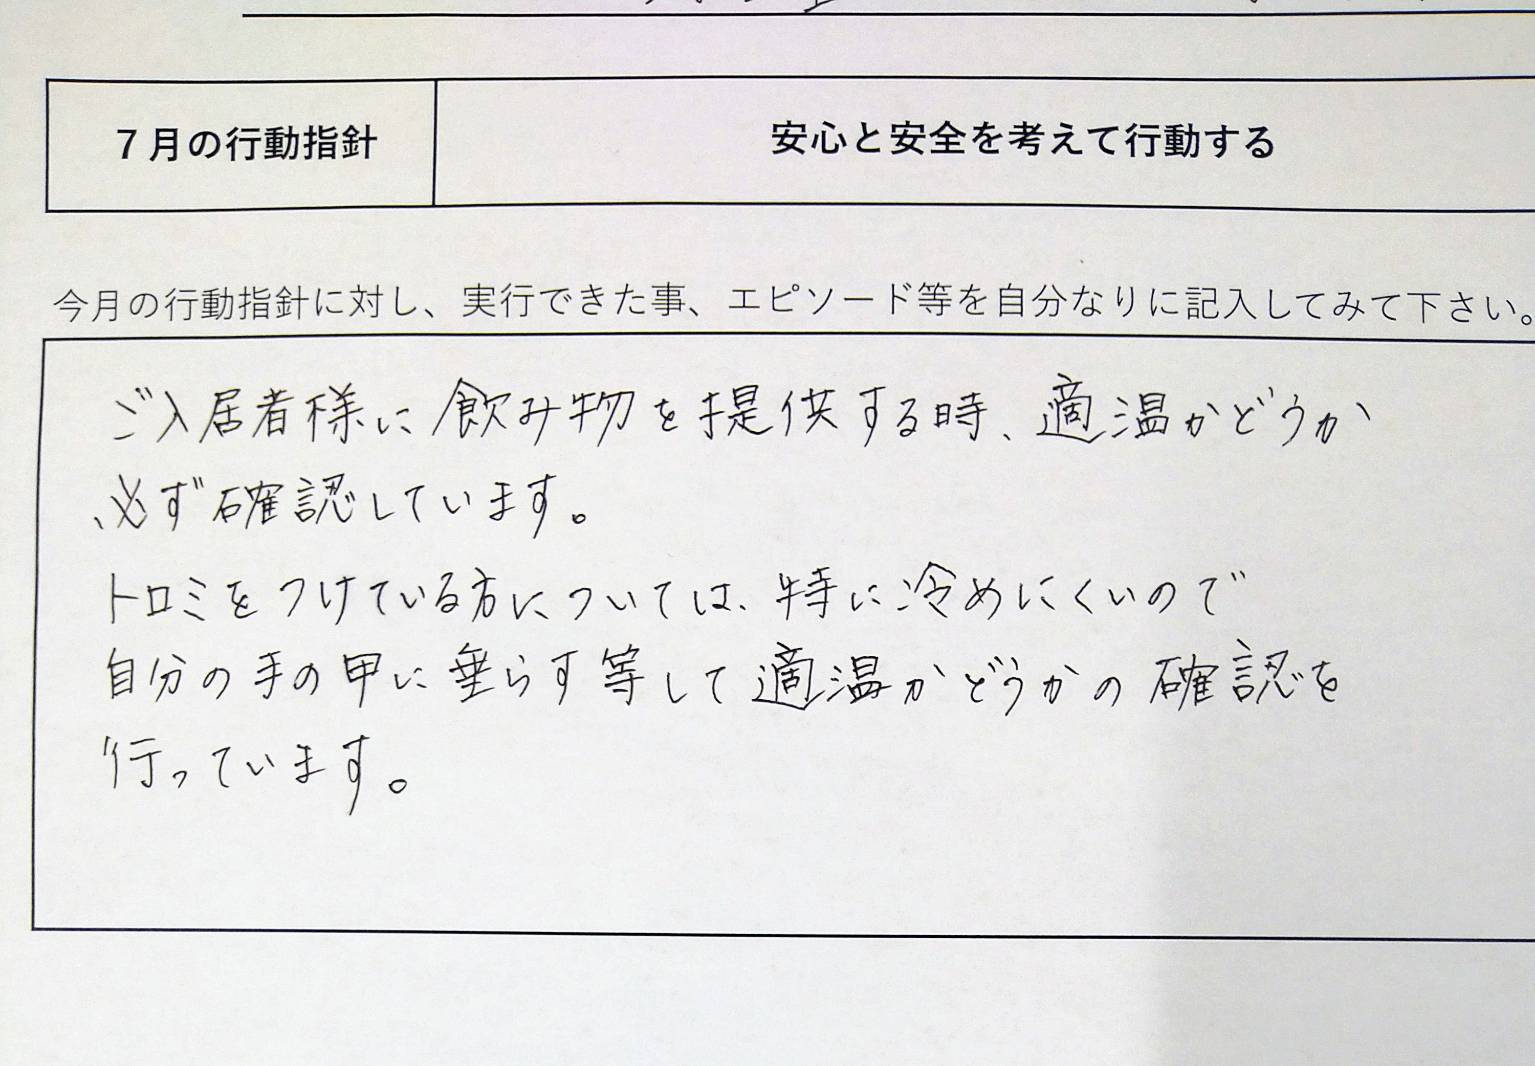 7月の行動指針
安心と安全を考えて行動する
今月の行動指針に対し、実行できた事、エピソード等を自分なりに記入してみて下さい。
ご入居者様に飲み物を提供する時、適温かどうか
必ず確認しています。
トロミをつけている方については、特に冷めにくいので
自分の手の甲に垂らす等して適温かどうかの確認を
行っています。